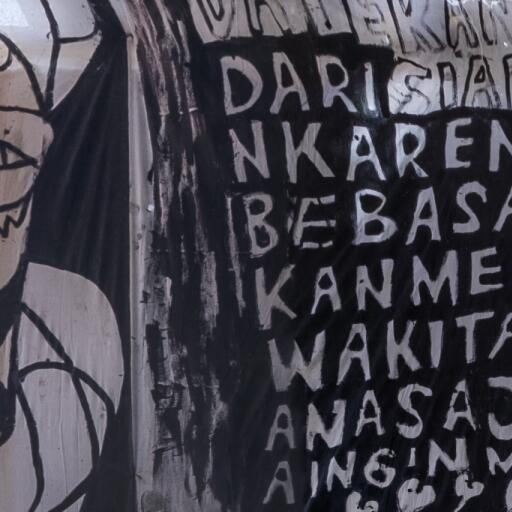 DARISIA
NKAREN
BEBASA
KANME
WAKITA
ANASAJ
AINGINM